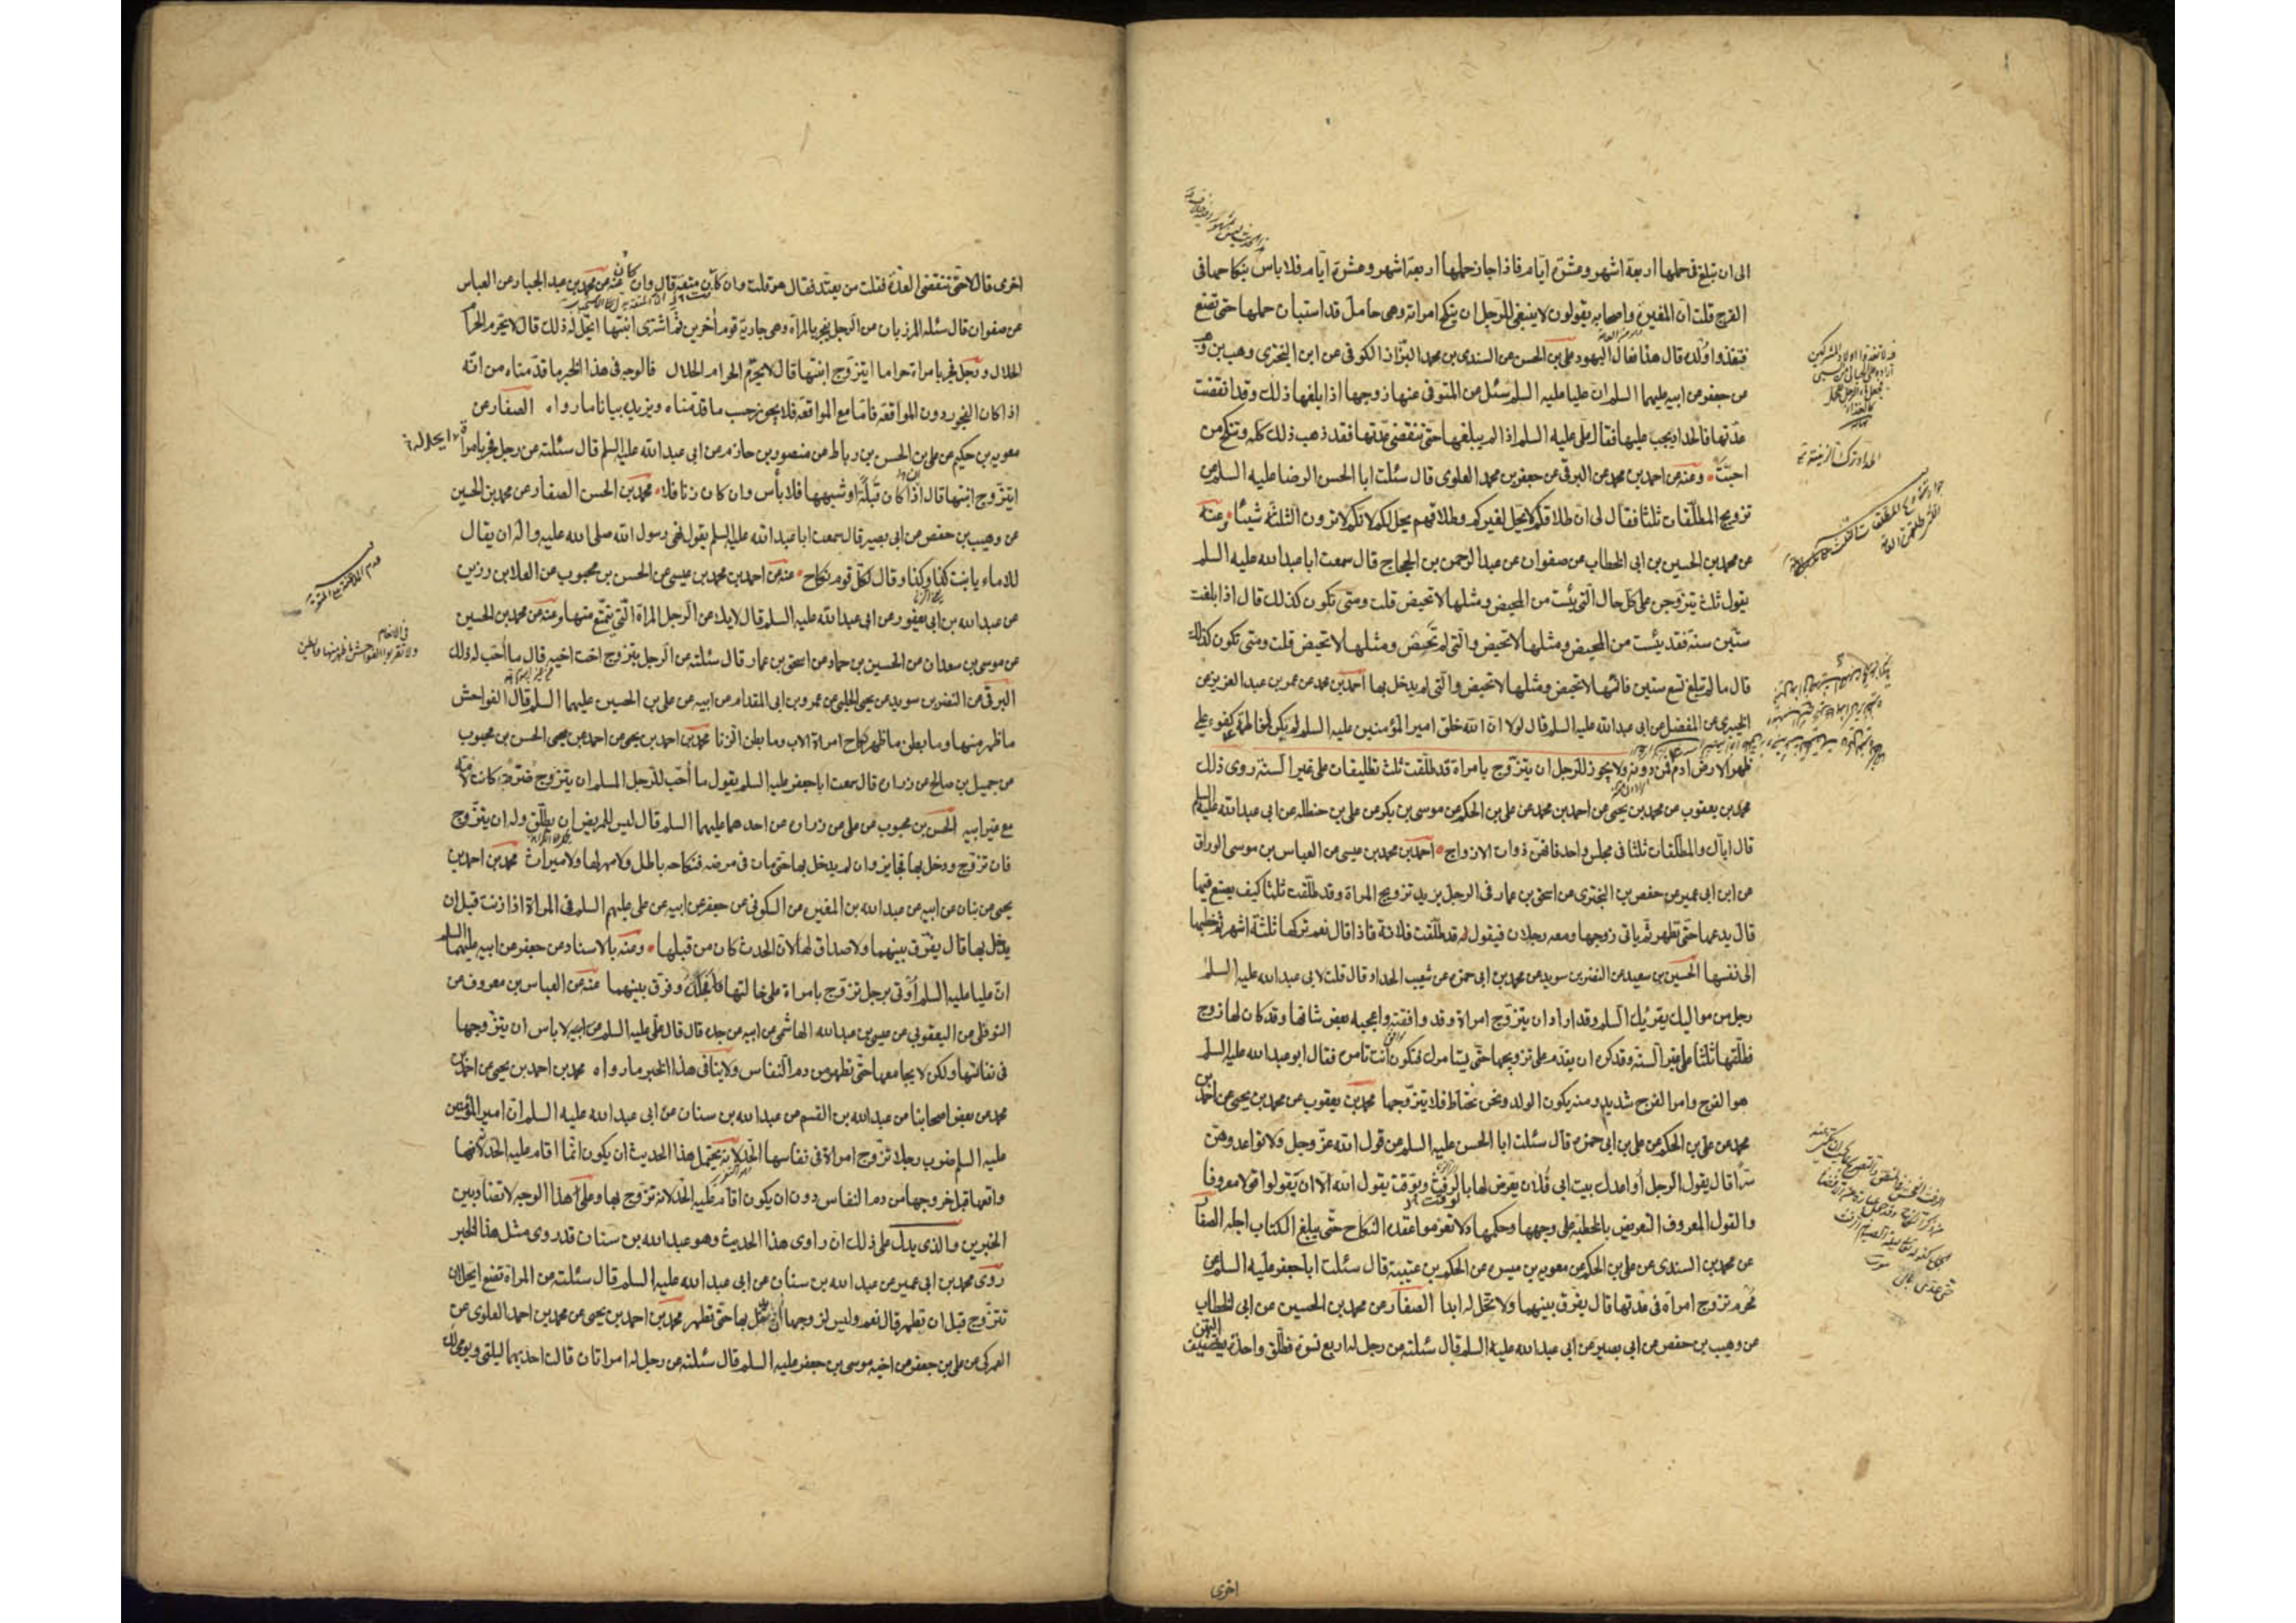 الى ان تبلغ فى حملها اربعة اشهر وعشرة ايّام فاذا جاز حملها اربعة اشهر وعشرة ايّام فلا باس بنكاحها فى
الفرج قلت انّ المغيرة واصحابه يقولون لا ينبغى للرّجل ان ينكح امراته وهى حامل قد استبان حملها حتى تضع
فتغذوا ولده قال هذا فعال اليهود علىّ بن الحسن عن السندى بن محمد البزّاز الكوفى عن ابى البخترى وهب بن وهب
عن جعفر عن ابيه عليهما السلم ان عليا عليه السلم سئل عن المتوفى عنها زوجها اذا بلغها ذلك وقد انقضت
عدّتها فالحداد يجب عليها فقال على عليه السلم اذا لم يبلغها حتى تنقضى عدّتها فقد ذهب ذلك كلّه وتنكح من
احبّت وعنه عن احمد بن محمد عن البرقى عن جعفر بن محمد العلوى قال سئلت ابا الحسن الرضا عليه السلم عن
تزويج المطلّقات ثلثا فقال لى ان طلاقكم لا يحلّ لغيركم وطلاقهم يحل لكم لانكم لا ترون الثلثة شيئا وعنه
عن محمد بن الحسين بن ابى الخطاب عن صفوان عن عبد الرحمن بن الحجاج قال سمعت ابا عبد الله عليه السلم
يقول ثلث يتزوجن على كل حال الّتى يئست من المحيض ومثلها لا تحيض قلت ومتى تكون كذلك قال اذا بلغت
ستّين سنة فقد يئست من المحيض ومثلها لا تحيض والّتى لم تحض ومثلها لا تحيض قلت ومتى تكون كذلك
قال ما لم تبلغ تسع سنين فانّها لا تحيض ومثلها لا تحيض والّتى لم يدخل بها احمد بن محمد عن عمر بن عبد العزيز عن
الخيبرى عن المفضل عن ابى عبد الله عليه السلم قال لولا ان الله خلق امير المؤمنين عليه السلم لم يكن لفاطمة كفوء على
ظهر الارض ادم فمن دونه ولا يجوز للرجل ان يتزوّج بامراة قد طلّقت ثلث تطليقات على غير السنّة روى ذلك
محمد بن يعقوب عن محمد بن يحيى عن احمد بن محمد عن على بن الحكم عن موسى بن بكر عن على بن حنظله عن ابى عبد الله عليه السلم
قال ايّاك والمطلّقات ثلثا فى مجلس واحد فانهنّ ذوات الازواج احمد بن محمد بن عيسى عن العباس بن موسى الوراق
عن ابن ابى عمير عن حفص بن البخترى عن اسحق بن عمار فى الرجل يريد تزويج المراة وقد طلّقت ثلثا كيف يصنع فيها
قال يدعها حتّى تطهر ثمّ ياتى زوجها ومعه رجلان فيقول له قد طلّقت فلانة فاذا قال نعم تركها ثلثة اشهر ثم خطبها
الى نفسها الحسين بن سعيد عن النضر بن سويد عن محمد بن ابى حمزه عن شعيب الحداد قال قلت لابى عبد الله عليه السلم
رجل من مواليك يقرئك السلم وقد اراد ان يتزوّج امراة وقد وافقته واعجبه بعض شانها وقد كان لها زوج
فطلّقها ثلثا على غير السنّة وقد كره ان يقدم على تزويجها حتّى يستامرك فتكون انت تامره فقال ابو عبد الله عليه السلم
هو الفرج وامر الفرج شديد ومنه يكون الولد ونحن نحتاط فلا يتزوّجها محمد بن يعقوب عن محمد بن يحيى عن احمد بن
محمد عن على بن الحكم عن على بن ابى حمزه قال سئلت ابا الحسن عليه السلم عن قول الله عزّ وجل ولا تواعدوهنّ
سرّا قال يقول الرجل أواعدك بيت ابى فلان يعرّض لها بالرفث ويوقت يقول الله الّا ان يقولوا قولا معروفا
والقول المعروف التعريض بالخطبة على وجهها وحكمها ولا تعزموا عقدة النكاح حتّى يبلغ الكتاب اجله الصفار
عن محمد بن السندى عن على بن الحكم عن معويه بن ميسره عن الحكم بن عتيبة قال سئلت ابا جعفر عليه السلم عن
محرم تزوج امراة فى عدّتها قال يفرّق بينهما ولا تحّل له ابدا الصفار عن محمد بن الحسين عن ابى الخطاب
عن وهيب بن حفص عن ابى بصير عن ابى عبد الله عليه السلم قال سئلته عن رجل له اربع نسوة فطلّق واحدة
اخرى
اخرى قال لا حتّى تنقضى العدّة فقلت من يعتد فقال هو قلت وان كان متعة قال وان كان عنه عن محمد بن عبد الجبار عن العباس
عن صفوان قال سئله المرزبان عن الرجل يفجر بالمراة وهى جارية قوم آخرين ثمّ اشترى ابنتها ايحّل له ذلك قال لا يحرّم الحرام
الحلال ورجل فجر بامراة حراما ايتزوّج ابنتها قال لا يحرّم الحرام الحلال فالوجه فى هذا الخبر ما قدّمناه من انّه
اذا كان الفجور دون المواقعة فامّا مع المواقعة فلا يجوز حسب ما قدّمناه ويزيده بيانا ما رواه الصفار عن
معويه بن حكيم عن على بن الحسن بن رباط عن منصور بن حازم عن ابى عبد الله عليه السلم قال سئلته عن رجل فجر بامراة ايحل له
ايتزوّج ابنتها قال اذا كان قُبلةً او شبهها فلا بأس وان كان زنا فلا محمد بن الحسن الصفار عن محمد بن الحسين
عن وهيب بن حفص عن ابى بصير قال سمعت ابا عبد الله عليه السلم يقول نهى رسول الله صلى الله عليه واله ان يقال
للاماء يا بنت كذا وكذا وقال لكلّ قوم نكاح عنه عن احمد بن محمد بن عيسى عن الحسن بن محبوب عن العلا بن رزين
عن عبد الله بن ابى يعفور عن ابى عبد الله عليه السلم قال لا يلاعن الرجل المراة الّتى يتمتّع منها وعنه عن محمد بن الحسين
عن موسى بن سعدان عن الحسين بن حماد عن اسحق بن عمار قال سئلته عن الرجل يتزوج اخت اخيه قال ما أحّب له ذلك
البرقى عن النضر بن سويد عن يحيى الحلبى عن عمرو بن ابى المقدام عن ابيه عن على بن الحسين عليهما السلم قال الفواحش
ما ظهر منها وما بطن ما ظهر نكاح امراة الاب وما بطن الزنا محمد بن احمد بن يحيى عن احمد عن يحيى الحسن بن محبوب
عن جميل بن صالح عن زراره قال سمعت ابا جعفر عليه السلم يقول ما أحّب للرّجل المسلم ان يتزوج ضرّة كانت لامّه
مع غير ابيه الحسن بن محبوب عن على عن زراره عن احدهما عليهما السلم قال ليس للمريض ان يطلّق وله ان يتزوّج
فان تزوّج ودخل بها فجايز وان لم يدخل بها حتّى مات فى مرضه فنكاحه باطل ولا مهر لها ولا ميراث محمد بن احمد بن
يحيى عن بنان عن ابيه عن عبد الله بن المغيره عن السكونى عن جعفر عن ابيه عن على عليهم السلم فى المراة اذا زنت قبل ان
يدخل بها قال يفرّق بينهما ولا صداق لها لانّ الحدث كان من قبلها ومنه بالاسناد عن جعفر عن ابيه عليهما السلم
انّ عليا عليه السلم أُوتى برجل تزوّج بامراة على خالتها فجلده وفرق بينهما عنه عن العباس بن معروف عن
النوفلى عن اليعقوبى عن عيسى بن عبد الله الهاشمى عن ابيه عن جدّه قال قال علّى عليه السلم لا باس ان يتزوجها
فى نفاسها ولكن لا يجامعها حتّى تطهر من دم النفاس ولا ينافى هذا الخبر ما رواه محمد بن احمد بن يحيى عن احمد بن
محمد عن بعض اصحابنا عن عبد الله بن القسم عن عبد الله بن سنان عن ابى عبد الله عليه السلم انّ امير المؤمنين
عليه السلم ضرب رجلا تزوّج امراة فى نفاسها الحّد لانه يحتمل هذا الحديث ان يكون انّما اقام عليه الحّد لانه
واقعها قبل خروجها من دم النفاس دون ان يكون اقام عليه الحّد لانه تزوّج بها وعلى هذا الوجه لا تضاد بين
الخبرين والذى يدل على ذلك ان راوى هذا الحديث وهو عبد الله بن سنان قد روى مثل هذا الخبر
روى محمد بن ابى عمير عن عبد الله بن سنان عن ابى عبد الله عليه السلم قال سئلته عن المراة تضع ايحل ان
تتزّوج قبل ان تطهر قال نعم وليس لزوجها أن يدخل بها حتّى تطهر محمد بن احمد بن يحيى عن محمد بن احمد العلوى عن
العمركى عن على بن جعفر عن اخيه موسى بن جعفر عليه السلم قال سئلته عن رجل له امراتان قالت احديهما ليلتى ويومى لك